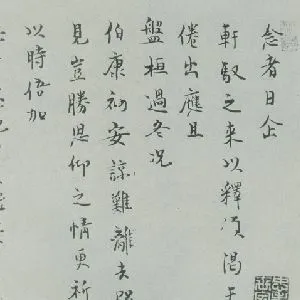 念者日企
軒馭之来以釋項渴
倦出應且
盤桓過冬況
伯康初安諒難離去
見豈勝思仰之情更祈
以時倍加